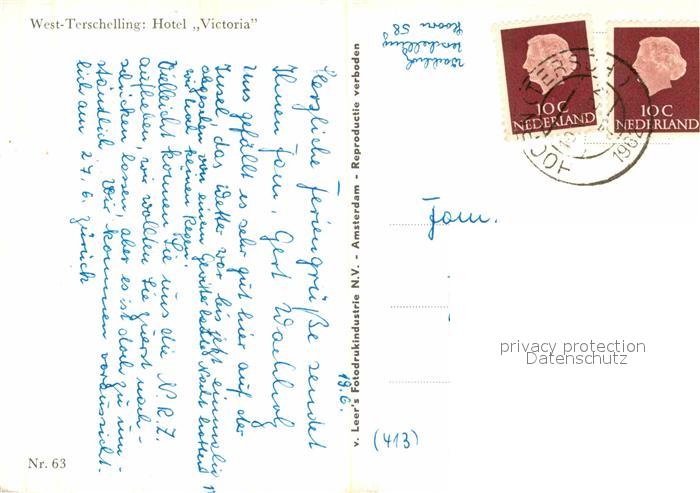 West-Terschelling: Hotel „Victoria”
Herzliche Feriengrüße sendet
Ihnen Fam. Gert Wachholz
Uns gefällt es sehr gut hier auf der
Insel, das Wetter war bis jetzt einmalig
abgesehen von einem Gewitter letzte Nacht hatten
wir mal keinen Regen.
Vielleicht können Sie uns die N.R.Z.
aufheben, wir wollten Sie zuerst nach-
schicken lassen, aber es ist doch zu um-
ständlich. Wir kommen voraussicht-
lich am 27.6. zurück
19.6.
Nr. 63
v. Leer's Fotodrukindustrie N.V. - Amsterdam - Reproductie verboden
Terschelling
Hoorn 58
10 C
NEDERLAND
10 C
NEDERLAND
HOORN (TERSCH.)
1962
Fam.
privacy protection
Datenschutz
(413)